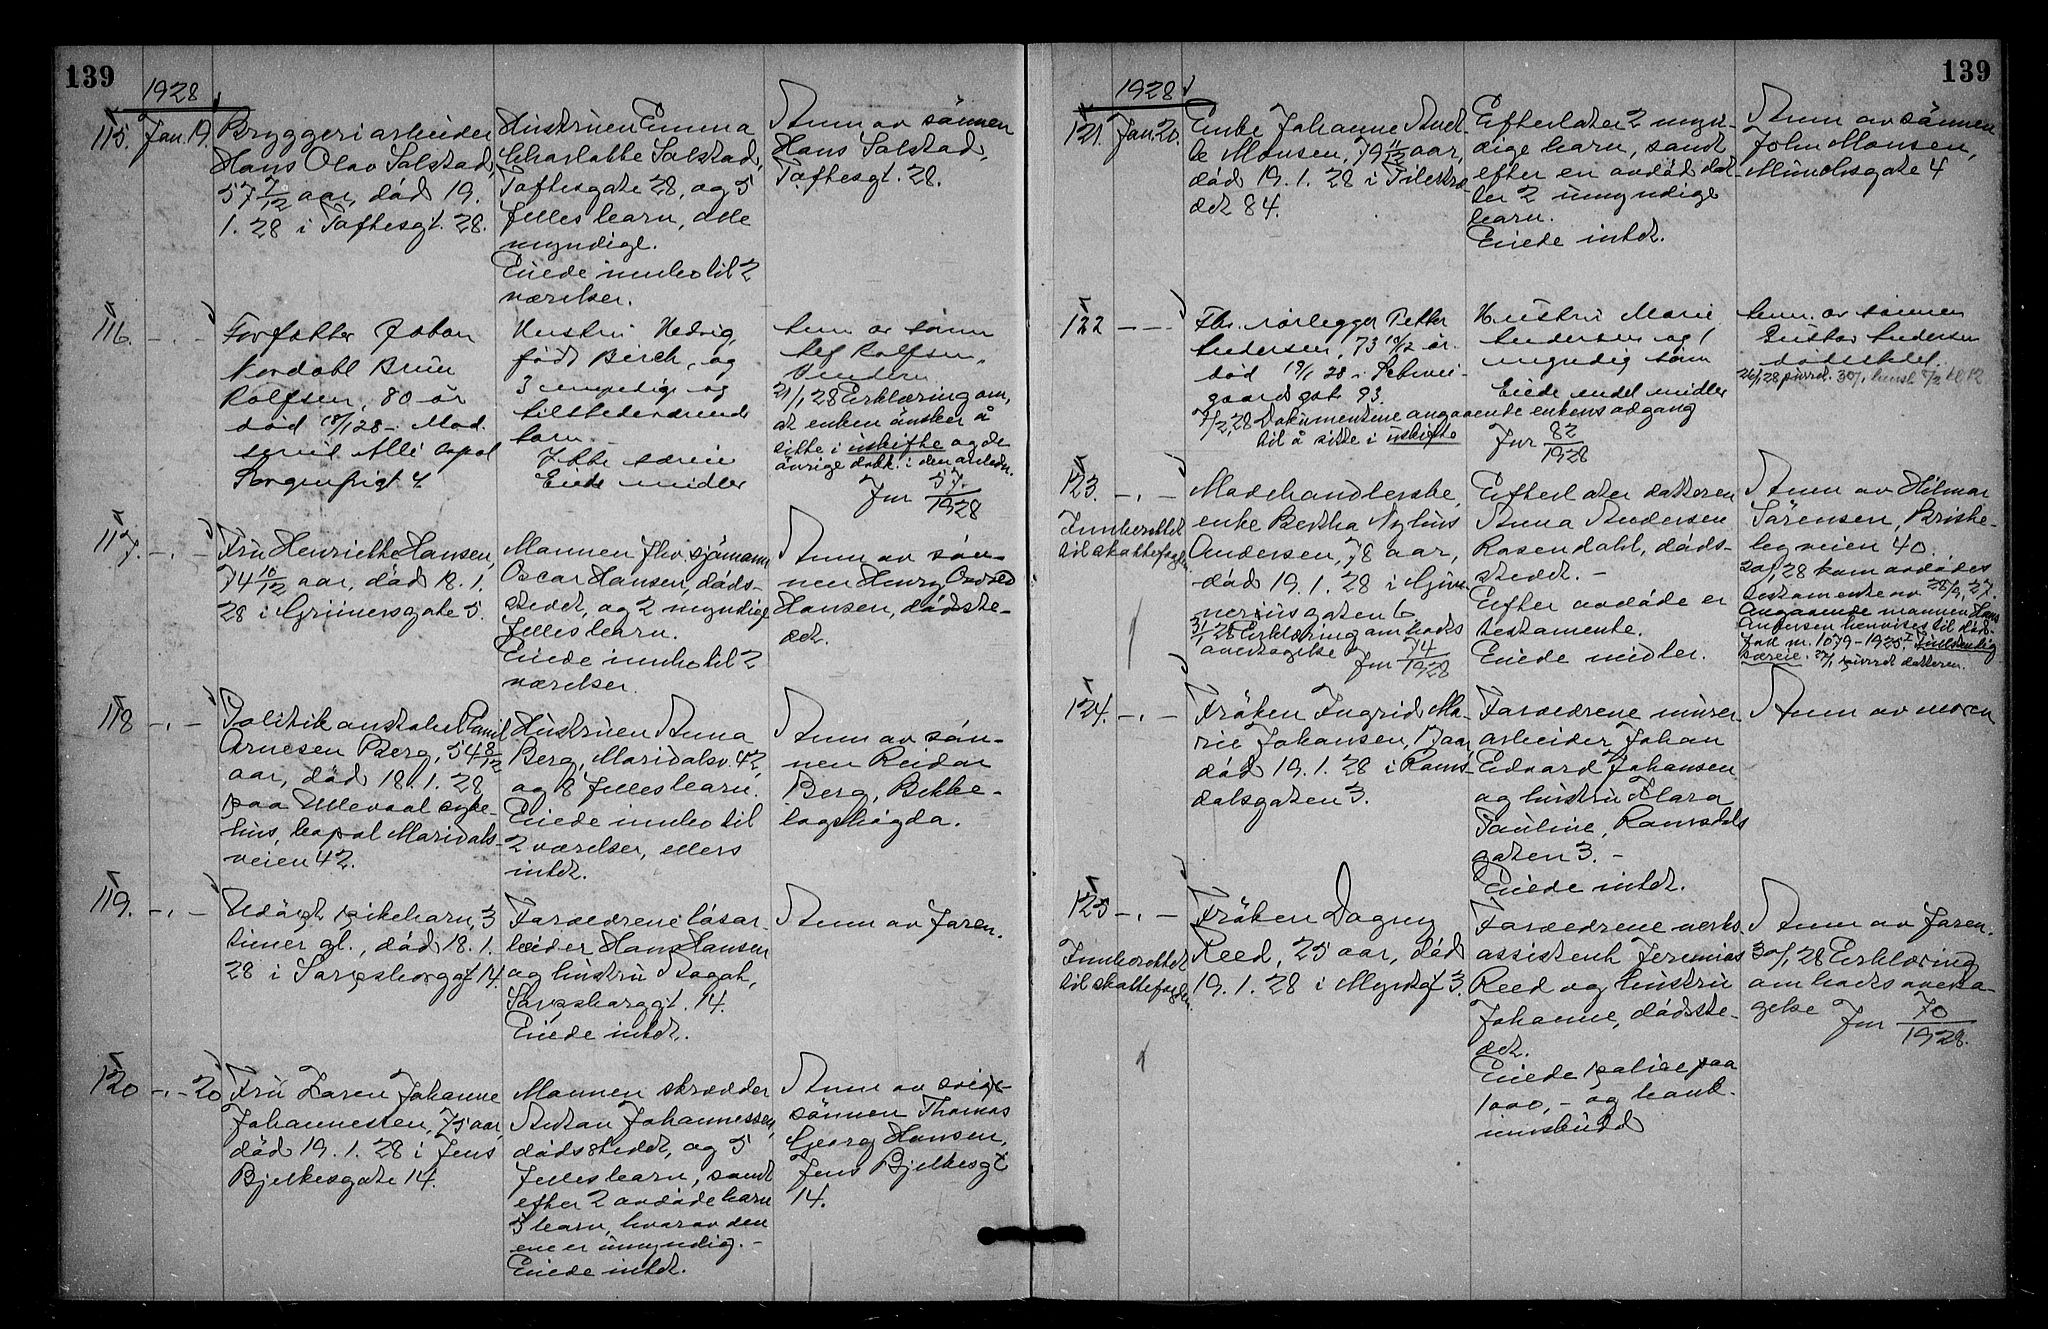 139
1928
115. Jan. 19.
Bryggeriarbeider
Hans Olav Solstad,
57 7/12 aar, död 19.
1. 28 i Toftesgt. 28.
Hustruen Emma
Charlotte Solstad,
Toftesgate 28, og 5
fellesbarn, alle
myndige.
Eiede innbo til 2
værelser.
Anm. av sönnen
Hans Solstad,
Toftesgt. 28.
116. - . -
Forfatter Johan
Nordahl Brun
Rolfsen, 80 år
död 18/1 28 - Mad.
serud Allé
Sorgenfrigt 4
Hustru Hedvig,
född Birch, og
3 myndige og
tilstedeværende
barn.
Ikke særeie
Eiede midler
Anm. av sönn
Alf Rolfsen,
Vindern
21/1 28 Erklæring om,
at enken önsker å
sitte i uskifte og de
övrige dokk. i den anledn.
Jnr 57/1928
117. - . -
Fru Henriette Hansen,
74 10/12 aar, död 18. 1.
28 i Grünersgate 5.
Mannen fhv. sjömann
Oscar Hansen, döds-
stedet, og 2 myndige
fellesbarn.
Eiede innbo til 2
værelser.
Anm. av sön-
nen Henry Oswald
Hansen, dödste-
det.
118 - . -
Politikonstabel
Arnesen Berg, 54 8/12
aar, död 18. 1. 28
paa Ullevaal syke-
hus, bopæl Maridals-
veien 42.
Hustruen Anna
Berg, Maridalsv. 42,
og 8 fellesbarn.
Eiede innbo til
2 værelser, ellers
intet.
Anm. av sön-
nen Reidar
Berg, Bekke-
lagshögda.
119. - . -
Udöpt pikebarn, 3
timer gl., död 18. 1.
28 i Sarpsborggt 14.
Forældrene lösar-
beider Hans Hansen
og hustru Aagot,
Sarpsborggt. 14.
Eiede intet.
Anm. av faren.
120 - . - 20
Fru Karen Johanne
Johannessen, 75 aar,
död 19. 1. 28 i Jens
Bjelkesgate 14.
Mannen skrædder
Anton Johannessen,
dödsstedet, og 5
fellesbarn, samt
efter 2 avdöde barn
5 barn, hvorav den
ene er umyndig. -
Eiede intet.
Anm. av sviger-
sönnen Thomas
Georg Hansen,
Jens Bjelkesgt
14.
139
1928
121. Jan. 20.
Enke Johanne Anet-
te Monsen, 79 11/12 aar,
död 19. 1. 28 i Pilestræ-
det 84.
Efterlater 2 myn-
dige barn, samt
efter en avdöd dat-
ter 2 umyndige
barn.
Eiede intet.
Anm av sönnen
John Monsen,
Munchsgate 4
122 - - -
Fhv. rörlegger Petter
Andersen, 73 10/12 år.
död 19/1 28 i Schwei-
gaardsgt. 93.
7/2 28 Dokumentene angaaende enkens adgang
til å sitte i uskifte
Jnr 82/1928
Hustru Marie
Andersen og 1
myndig sönn
Eiede endel midler
Anm. av sönnen
Gustav Andersen
dödsstedet.
26/1 28 purret. 30/1
123. - . -
Innberettet
til skattefogden
Madhandlerske,
enke Bertha Nylius
Andersen, 78 aar,
död 19. 1. 28 i Gjüve-
neriusgaten 6
31/1 28 Erklæring om bods
overtagelse
Jnr 74/1928
Efterlater datteren
Anna Andersen
Rosendahl, döds-
stedet. -
Efter avdöde er
testamente.
Eiede midler.
Anm av Hilmar
Sörensen, Briske-
byveien 40.
20/1 28 kom avdödes
testamente av 28/9 27.
Angaaende mannen Hans
Andersen henvises til död-
fall nr. 1079 - 1925. Fullstendig
særeie. 27/1 purret datteren.
124. - . -
Fröken Ingrid Ma-
rie Johansen, 17 aar,
död 19. 1. 28 i Roms-
dalsgaten 3.
Forældrene murer-
arbeider Johan
Edvard Johansen
og hustru Klara
Pauline, Romsdals
gaten 3. -
Eiede intet.
Anm av moren
125 - . -
Innberettet
til skattefogden
Fröken Dagny
Reed, 25 aar, död
19. 1. 28 i Myntgt 3.
Forældrene verks.
assistent Jeremias
Reed og hustru
Johanne, dödsste-
det.
Eiede polise paa
1000,- og bank-
innskudd
Anm av faren.
30/1 28 Erklæring
om bods overta-
gelse
Jnr 70/1928.